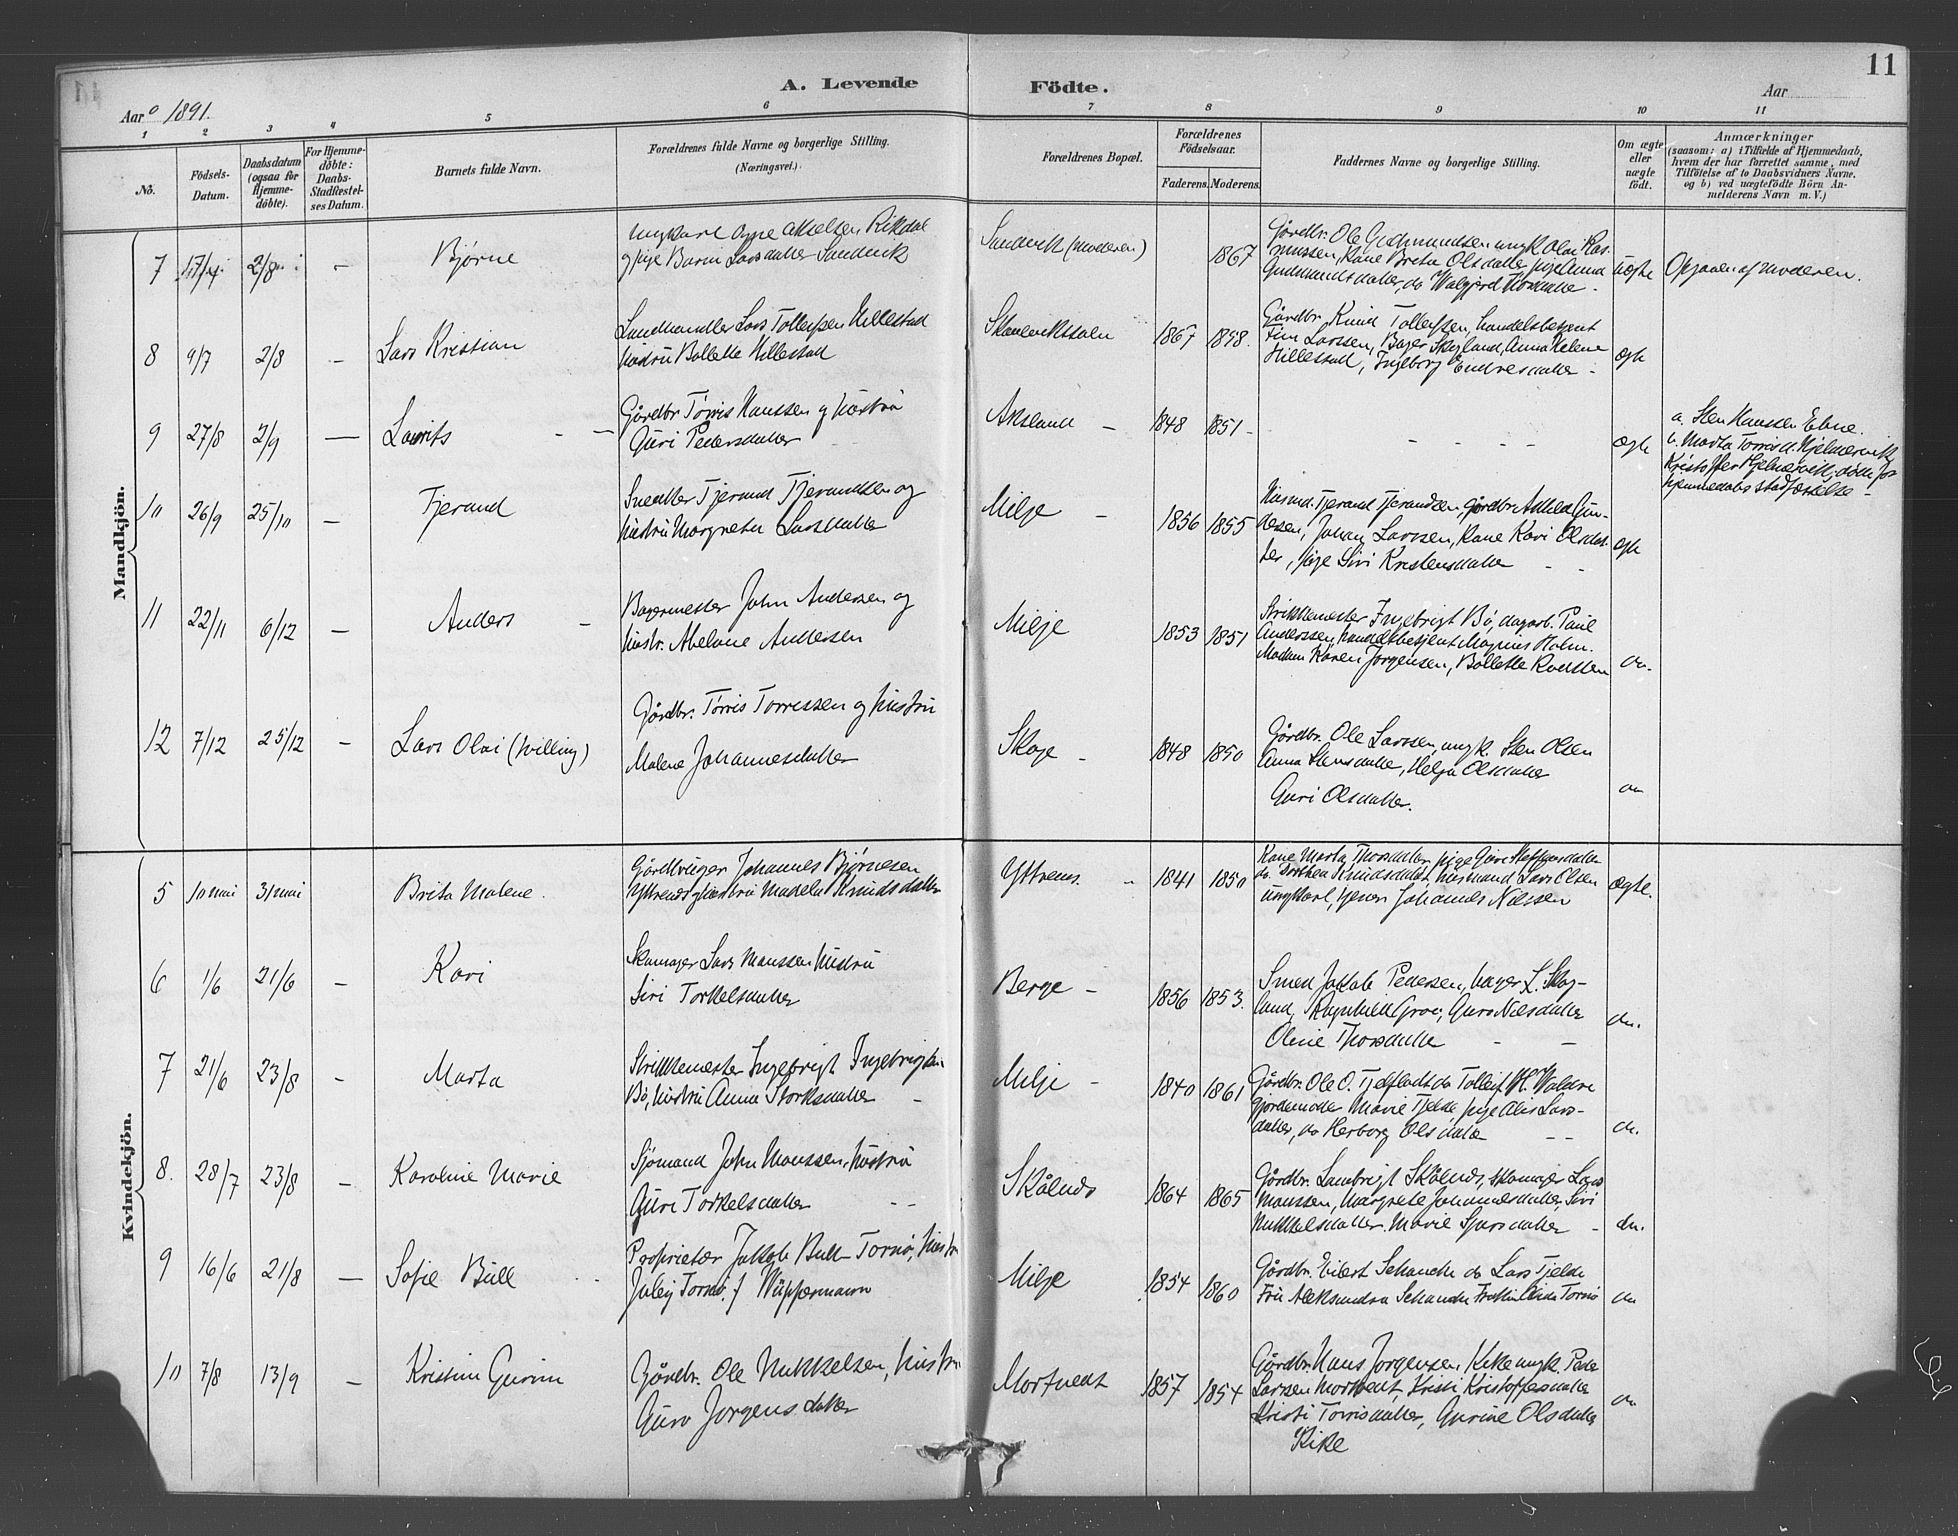 11
A. Levende Födte.
Aar 1891.
Aar
1 2 3 4 5 6 7 8 9 10 11
No.
Födsels-Datum.
Daabsdatum (ogsaa for Hjemme-döbte).
For Hjemme-döbte: Daabs-Stadfæstel-ses Datum.
Barnets fulde Navn.
Forældrenes fulde Navne og borgerlige Stilling.
(Næringsvei.)
Forældrenes Bopæl.
Forældrenes Födselsaar.
Faderens. Moderens.
Faddernes Navne og borgerlige Stilling.
Om ægte eller uægte födt.
Anmærkninger
(saasom: a) i Tilfælde af Hjemmedaab,
hvem der har forrettet samme, med
Tilföielse af to Daabsvidners Navne,
og b) ved uægtefödte Börn An-
melderens Navn m. V.)
Mandkjön.
7 17/4 2/8 - Bjørne
ungkarl Axelsen Rikdal
og pige Larsdatter Sandvik
Sandvik (moderen) 1867
Gårdbr. Ole Gudmundsen, ungk. Olai Ras-
mussen, Kone Brita Olsdatter, pige Anna
Gudmundsdatter, do Thorsdatter
uægte
Opgaven af moderen.
8 9/7 2/8 - Lars Kristian
Landhandler Lars Tollefsen Hillestad
hustru Bollette Hillestad
1867
Gårdbr. Knud Tollefsen, handelsbetjent
Larssen, Bager Skogland, Anna Helene
Hillestad, Ingeborg Endresdatter -
ægte
9 27/8 2/9 - Laurits
Gårdbr Tørris Hanssen og hustru
Guri Pedersdatter
Aksland - 1848 1851 -
ægte
a. Sten Hanssen Ebne.
b. Marta Torrisd. Hjelmervik
Kristoffer Hjelmervik, døde før
hjemmedaabs stadfæstelse -
10 26/9 25/10 - Tjerand
Snedker Tjerand Tjerandsen og
hustru Margreta Larsdatter
Milje - 1856 1855
Husmd. Tjerand Tjerandsen, gårdbr.
Johan Larssen, Kone Kari Olsdat-
ter, pige Siri Kristensdatter - -
ægte
11 22/11 6/12 - Anders -
Bagermester John Andersen og
hustr. Abelone Andersen
Milje 1853 1851
Strikkemester Ingebrigt Bø, dagarb. Paul
Anderssen, handelsbetjent Magnus Holm.
Madam Karen Jørgensen, Bollette
do.
12 7/12 25/12 - Lars Olai (tvilling)
Gårdbr. Tørris Torressen og hustru
Malene Johannesdatter
Skoge - 1848 1850
Gårdbr. Ole Larssen, ungk. Sten Olsen
Anna Stensdatter, Helga Olsdatter
Guri Olsdatter.
do
Kvindekjön.
5 10 mai 31 mai Brita Malene.
Gårdbruger Johannes Bjørnesen
Ytrenes og hustru Madela Knudsdatter
Ytrenes. 1841 1850
Kone Marta Thorsdatter, pige Guri
do. Dorthea Knudsdatter, husmand Lars Olsen
ungkarl, tjener Johannes Nilssen
ægte.
6 1/6 21/6 - Kari
Skomager Lars Monssen hustru
Siri Torkelsdatter
Berge - 1856 1853.
Smed Jakob Pedersen, bager L. Skog-
land, Ragnhild Groe, Guro Nilsdatter
Oline Thorsdatter - -
do.
7 21/6 23/8 - Marta
Strikkemester Ingebrigt Ingebrigtsen
Bø, hustru Anna Storksdatter -
Milje - 1840 1861
Gårdbr. Ole O. Tjelflaat do Tollef H. Valdre
gjordemoder Marie Tjelde pige Alis Lars-
datter, do Herborg Olsdatter - -
do.
8. 28/7 23/8 - Karoline Marie
Sjømand John Monssen, hustru
Guri Torkelsdatter - -
Skålnes 1864 1865
Gårdbr. Lambrigt Skålnes, skomager Lars
Monssen, Margrete Johannesdatter, Siri
Mikkelsdatter, Marie Sjursdatter -
do.
9 16/6 21/8 - Sofie Bull
Proprietær Jakob Bull Tornø, hustru
Tornø, f. Wüppermann
Milje 1854 1860
Gårdbr. Eilert Schanche do Lars Tjelde
Fru Aleksandra Schanche Frøken Tornø
do
10 7/8 13/9 - Kristine Gurine
Gårdbr. Ole Mikkelsen, hustru
Guro Jørgensdatter
Mortvedt 1857 1854
Gårdbr. Hans Jørgensen, Kike ungk. Peder
Larssen Mortvedt, Kristi Kristoffersdatter
Kristi Torrisdatter, Gurine Olsdatter
Kike
do